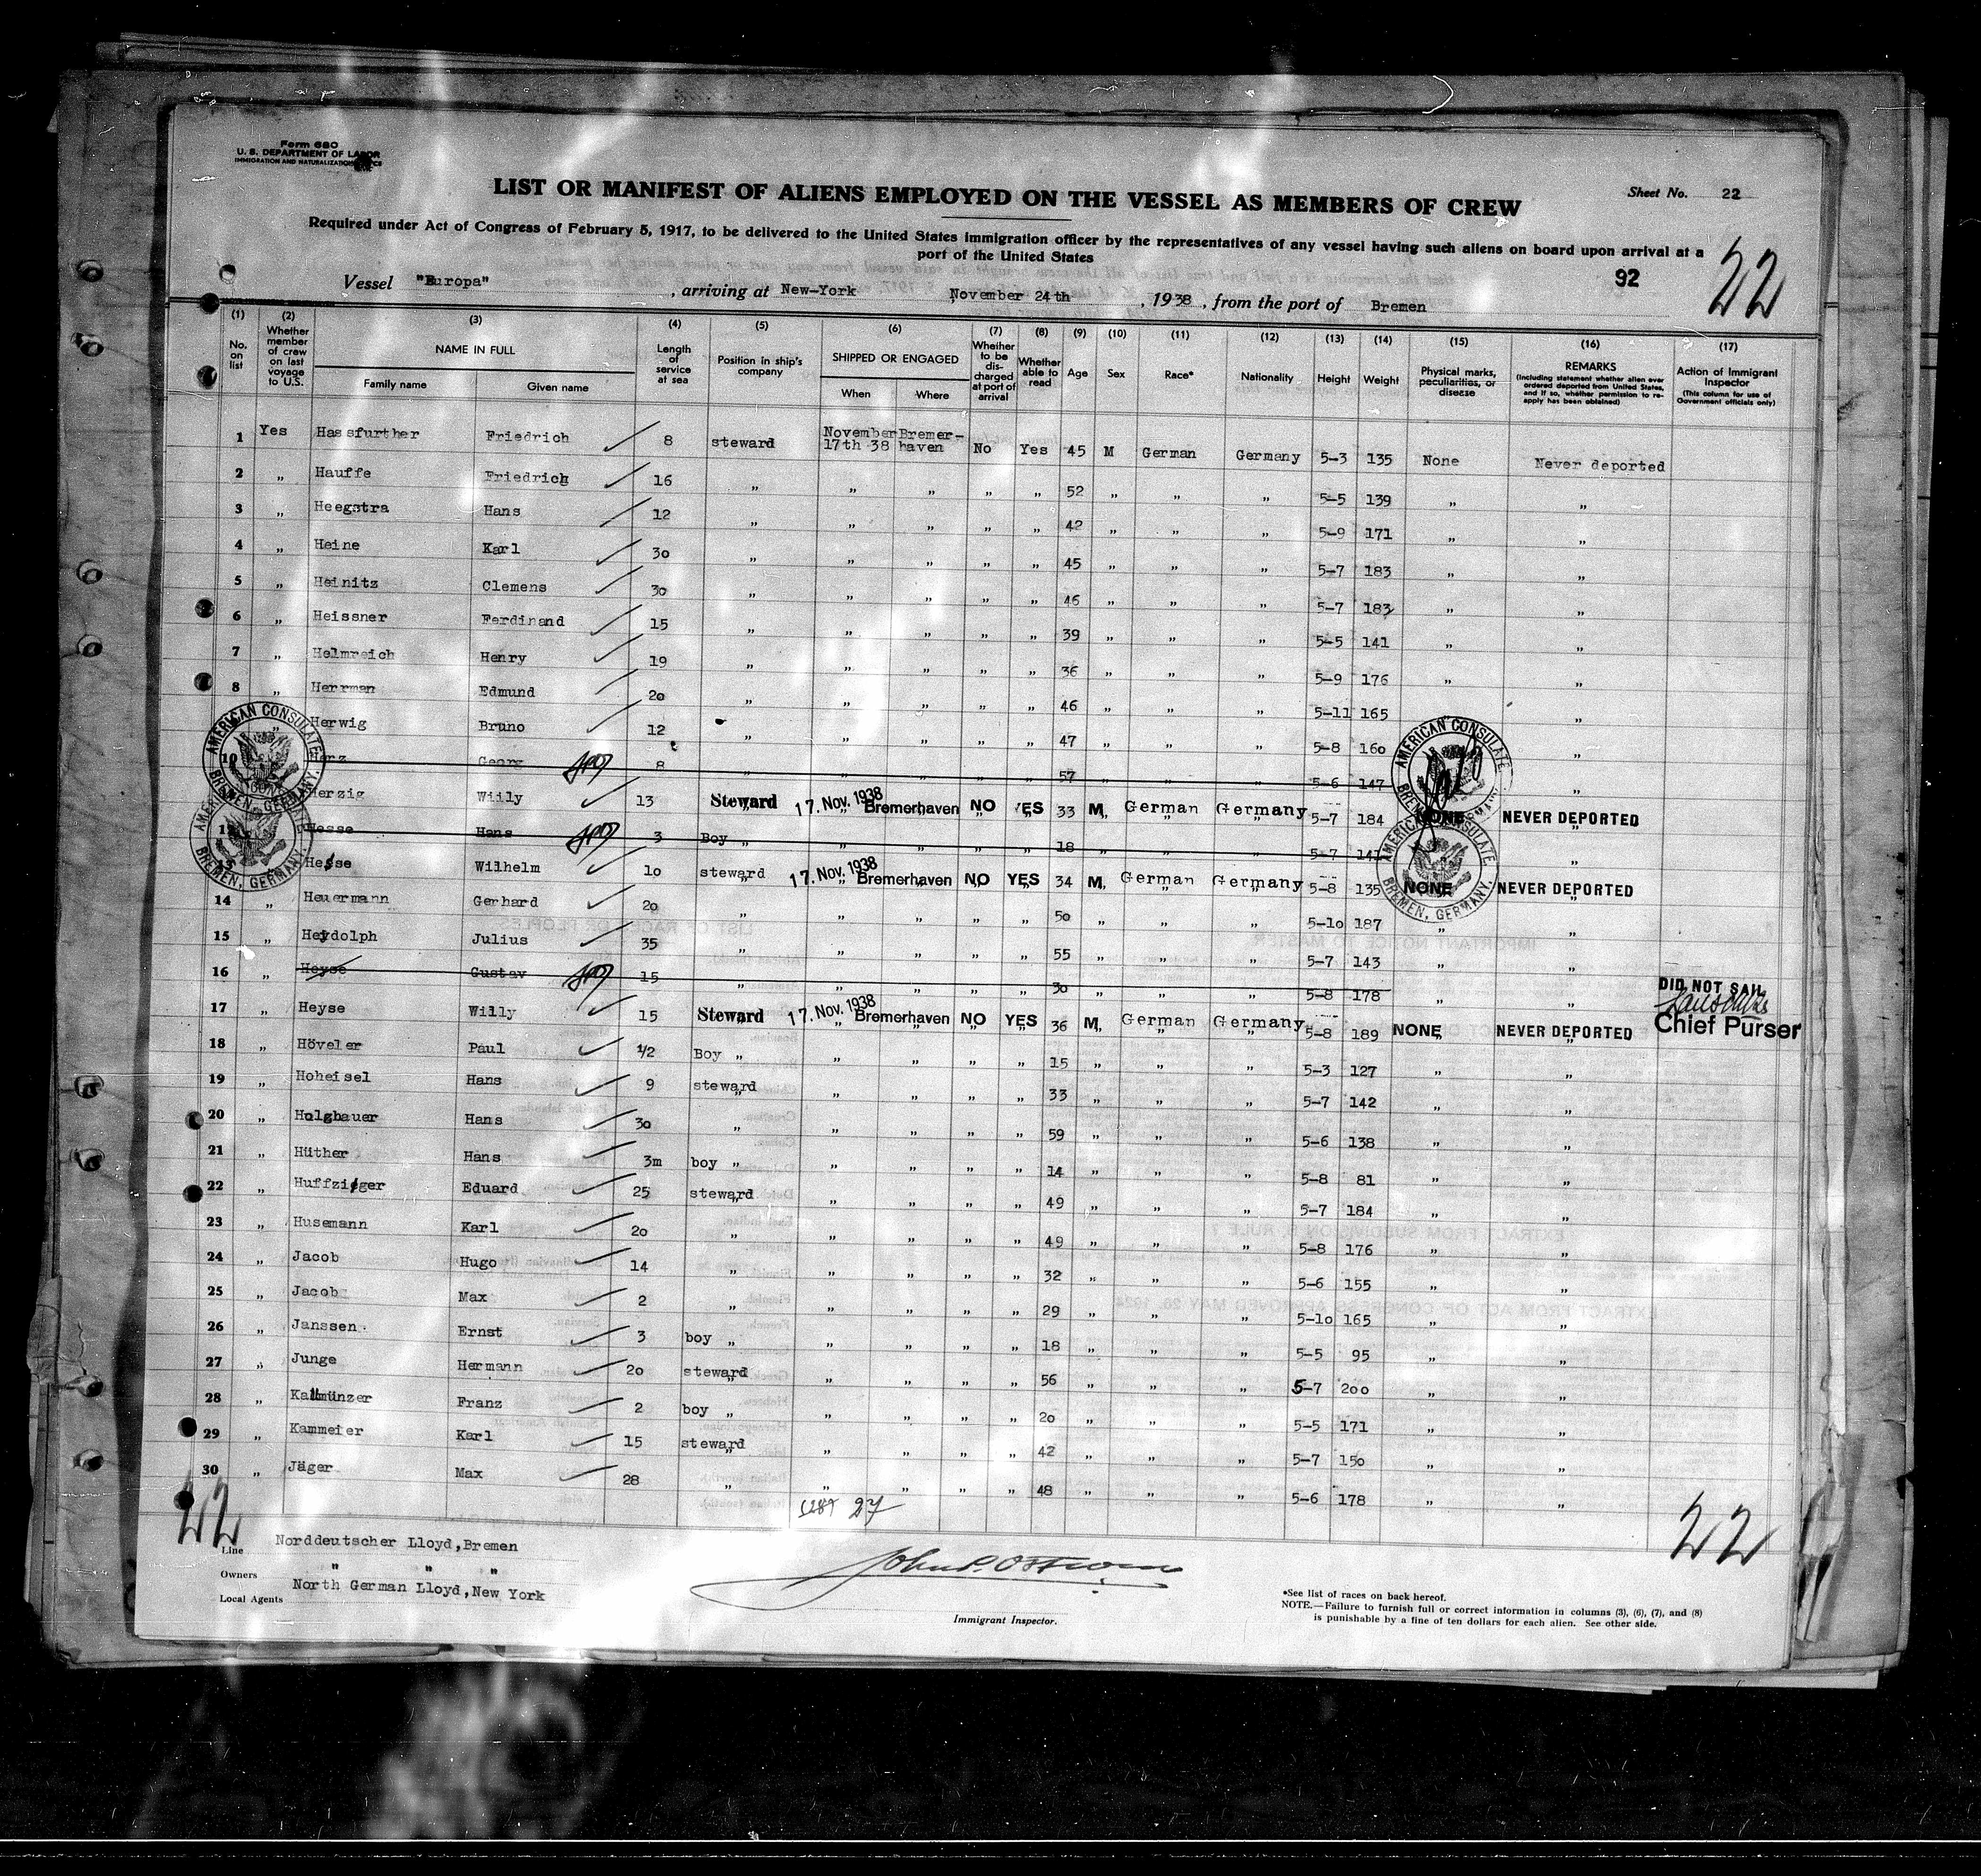 Form 680
U. S. DEPARTMENT OF LABOR
IMMIGRATION AND NATURALIZATION
LIST OR MANIFEST OF ALIENS EMPLOYED ON THE VESSEL AS MEMBERS OF CREW
Sheet No. 22
Required under Act of Congress of February 5, 1917, to be delivered to the United States immigration officer by the representatives of any vessel having such aliens on board upon arrival at a
port of the United States
92
22
Vessel "Europa", arriving at New-York November 24th, 1938, from the port of Bremen
(1) (2) (3) (4) (5) (6) (7) (8) (9) (10) (11) (12) (13) (14) (15) (16) (17)
No. on list
Whether member of crew on last voyage to U.S.
NAME IN FULL
Family name Given name
Length of service at sea
Position in ship's company
SHIPPED OR ENGAGED
When Where
Whether to be discharged at port of arrival
Whether able to read
Age
Sex
Race*
Nationality
Height
Weight
Physical marks, peculiarities, or disease
REMARKS
(Including statement whether alien ever ordered deported from United States, and if so, whether permission to reapply has been obtained)
Action of Immigrant Inspector
(This column for use of Government officials only)
1 Yes Hassfurther Friedrich 8 steward November 17th 38 Bremerhaven No Yes 45 M German Germany 5-3 135 None Never deported
2 „ Hauffe Friedrich 16 „ „ „ „ „ 52 „ „ „ 5-5 139 „ „
3 „ Heegstra Hans 12 „ „ „ „ „ 42 „ „ „ 5-9 171 „ „
4 „ Heine Karl 30 „ „ „ „ „ 45 „ „ „ 5-7 183 „ „
5 „ Heinitz Clemens 30 „ „ „ „ „ 46 „ „ „ 5-7 183 „ „
6 „ Heissner Ferdinand 15 „ „ „ „ „ 39 „ „ „ 5-5 141 „ „
7 „ Helmreich Henry 19 „ „ „ „ „ 36 „ „ „ 5-9 176 „ „
8 „ Herrman Edmund 20 „ „ „ „ „ 46 „ „ „ 5-11 165 „ „
„ Herwig Bruno 12 „ „ „ „ „ 47 „ „ „ 5-8 160 „
10 Herz Georg 8 „ „ „ „ „ 57 „ „ „ 5-6 147 „
Herzig Willy 13 Steward 17. Nov. 1938 Bremerhaven NO YES 33 M German Germany 5-7 184 NONE NEVER DEPORTED
12 Hesse Hans 3 Boy „ „ „ „ „ 18 „ „ „ 5-7 141 „
13 Hesse Wilhelm 10 steward 17. Nov. 1938 Bremerhaven NO YES 34 M German Germany 5-8 135 NONE NEVER DEPORTED
14 „ Heuermann Gerhard 20 „ „ „ „ „ 50 „ „ „ 5-10 187 „ „
15 „ Heydolph Julius 35 „ „ „ „ „ 55 „ „ „ 5-7 143 „ „
16 „ Heyse Gustav 15 „ „ „ „ „ 30 „ „ „ 5-8 178 „ „ DID NOT SAIL
17 „ Heyse Willy 15 Steward 17. Nov. 1938 Bremerhaven NO YES 36 M German Germany 5-8 189 NONE NEVER DEPORTED Chief Purser
18 „ Höveler Paul 1/2 Boy „ „ „ „ „ 15 „ „ „ 5-3 127 „ „
19 „ Hoheisel Hans 9 steward „ „ „ „ 33 „ „ „ 5-7 142 „ „
20 „ Holghauer Hans 30 „ „ „ „ „ 59 „ „ „ 5-6 138 „ „
21 „ Hüther Hans 3m boy „ „ „ „ „ 14 „ „ „ 5-8 81 „ „
22 „ Huffziger Eduard 25 steward „ „ „ „ 49 „ „ „ 5-7 184 „ „
23 „ Husemann Karl 20 „ „ „ „ „ 49 „ „ „ 5-8 176 „ „
24 „ Jacob Hugo 14 „ „ „ „ „ 32 „ „ „ 5-6 155 „ „
25 „ Jacob Max 2 „ „ „ „ „ 29 „ „ „ 5-10 165 „ „
26 „ Janssen Ernst 3 boy „ „ „ „ „ 18 „ „ „ 5-5 95 „ „
27 „ Junge Hermann 20 steward „ „ „ „ 56 „ „ „ 5-7 200 „ „
28 „ Kallmünzer Franz 2 boy „ „ „ „ „ 20 „ „ „ 5-5 171 „ „
29 „ Kammeier Karl 15 steward „ „ „ „ 42 „ „ „ 5-7 150 „ „
30 „ Jäger Max 28 „ „ „ „ „ 48 „ „ „ 5-6 178 „ „
AMERICAN CONSULATE
BREMEN, GERMANY.
AMERICAN CONSULATE
BREMEN, GERMANY.
AMERICAN CONSULATE
BREMEN, GERMANY.
AMERICAN CONSULATE
BREMEN, GERMANY.
27
22
22
Line Norddeutscher Lloyd, Bremen
Owners " " "
Local Agents North German Lloyd, New York
John P. Ostrom
Immigrant Inspector.
*See list of races on back hereof.
NOTE.—Failure to furnish full or correct information in columns (3), (6), (7), and (8)
is punishable by a fine of ten dollars for each alien. See other side.